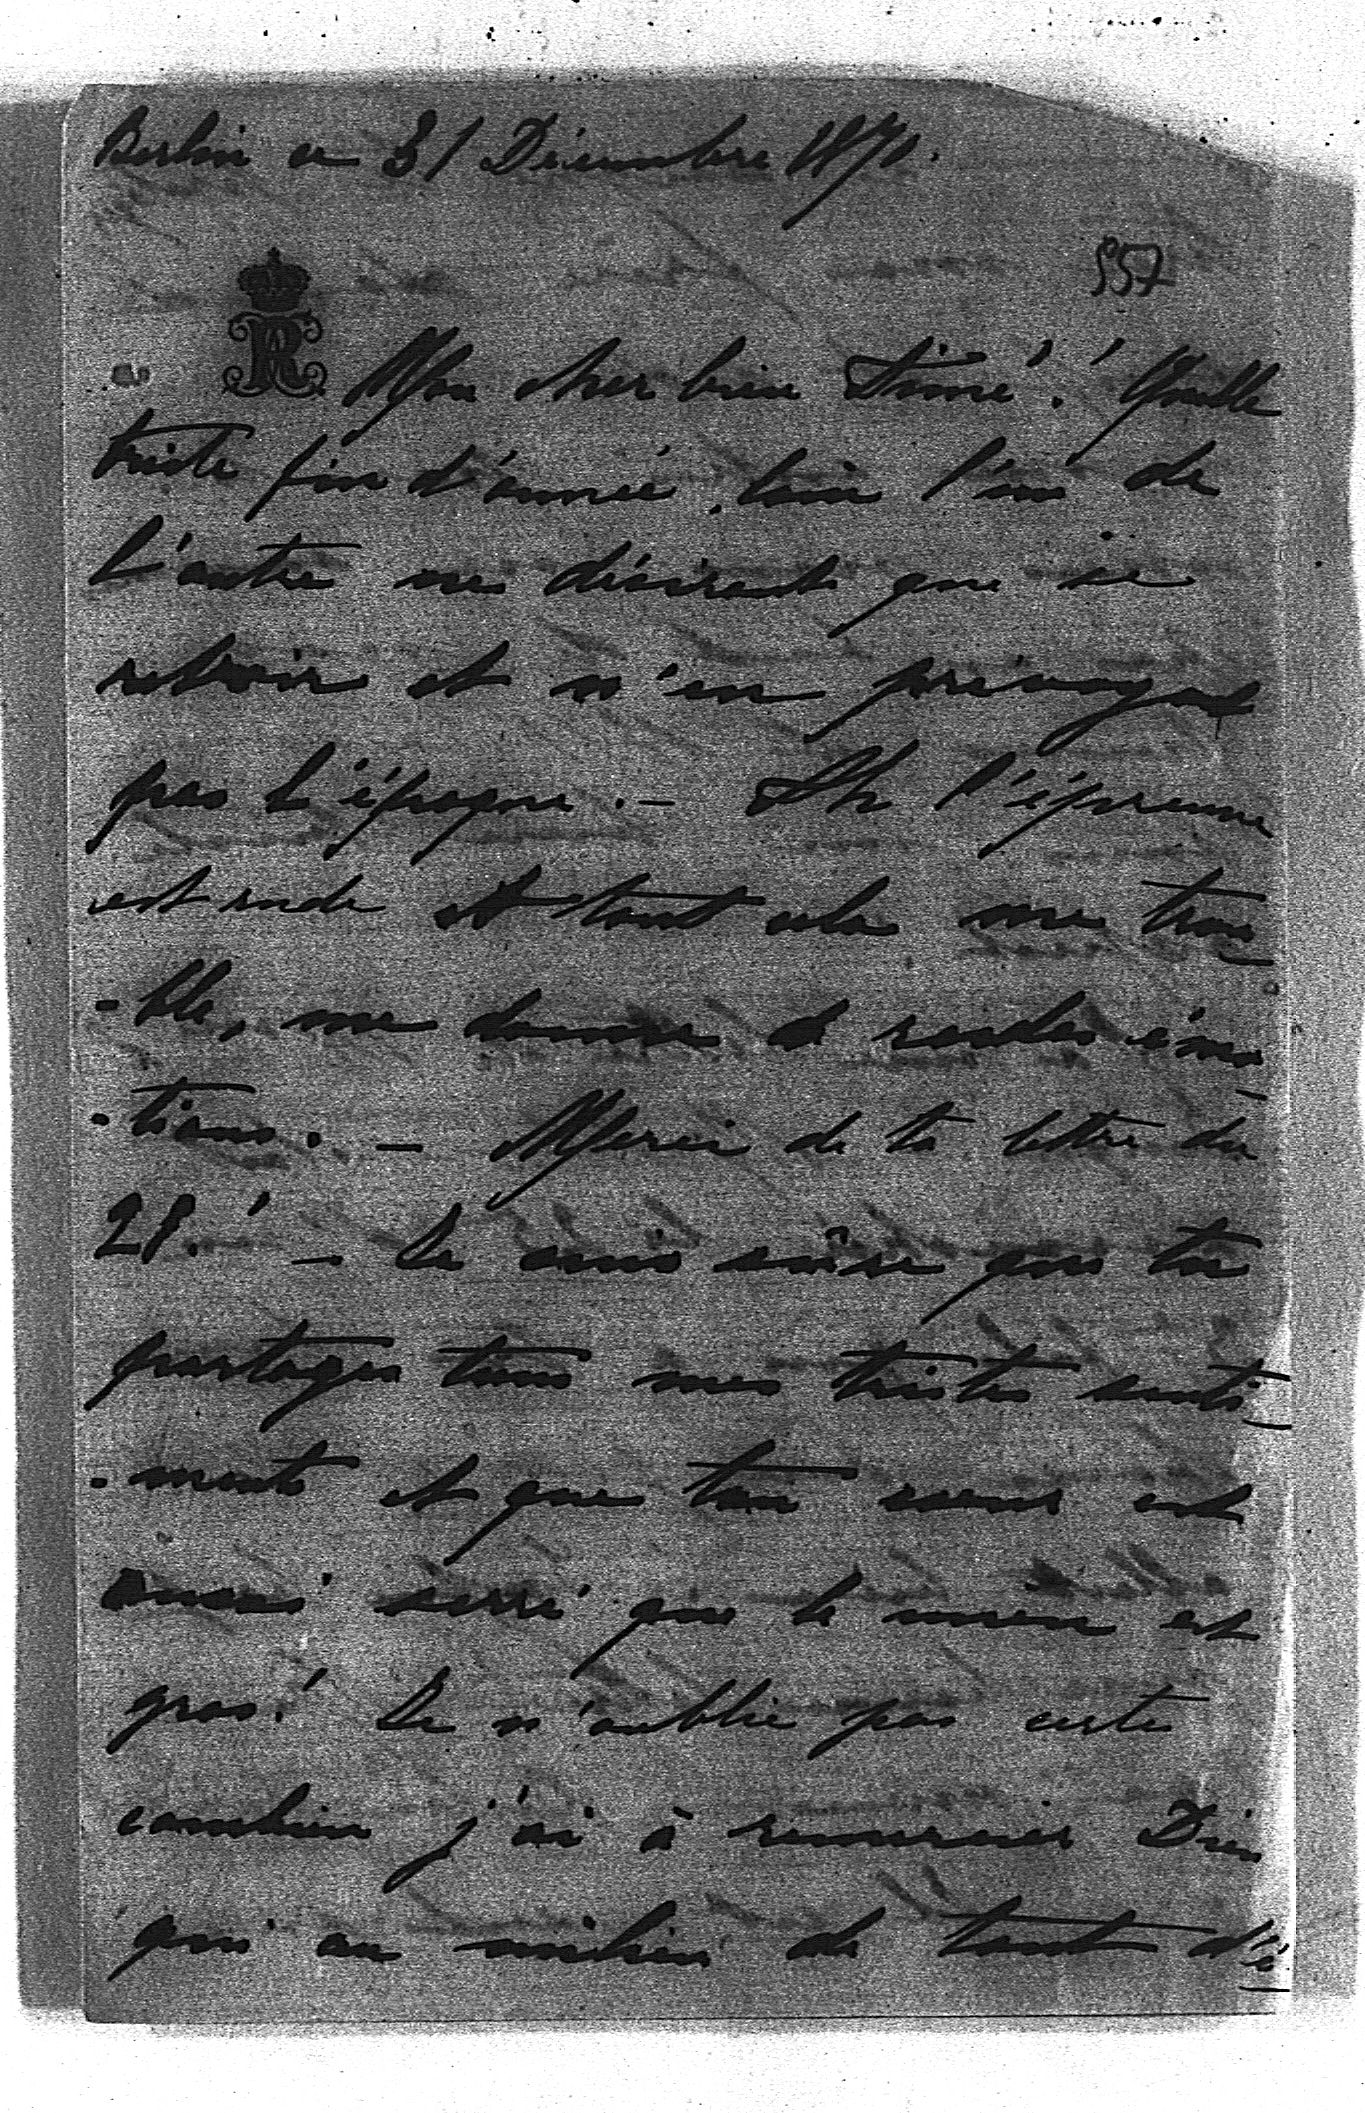 Berlin ce 31 Décembre 1870.
557
R
Mon cher bien Aimé! Quelle
triste fin d'année, loin l'un de
l'autre ne désirant que se
revoir et n'en prévoyant
pas l'époque. — Ah l'épreuve
est rude et tout cela me trou
-ble, me donne de rudes émo-
-tions. — Merci de ta lettre du
28! — Je suis sûre que tu
partages tous mes tristes senti-
-ments et que ton coeur est
aussi serré que le mien est
gros! Je n'oublie pas certes
combien j'ai à remercier Dieu
qui au milieu de tant d'é-